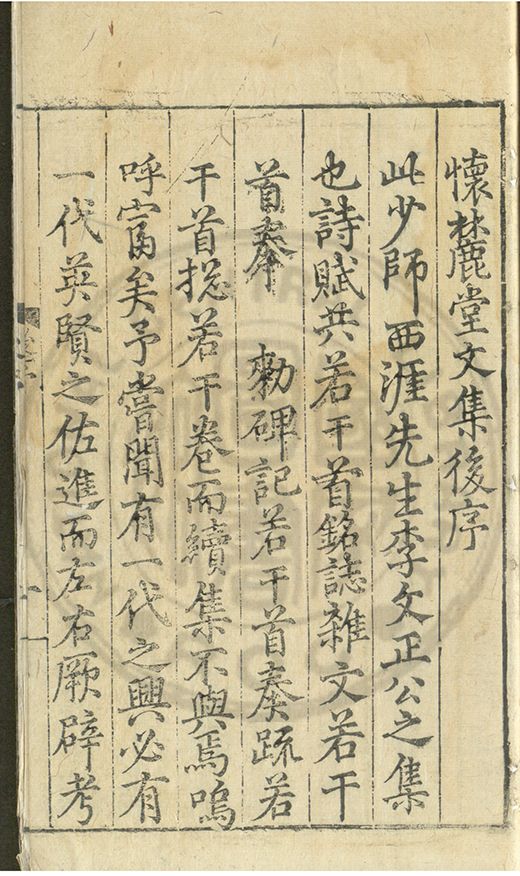 懷麓堂文集後序
此少師西涯先生李文正公之集
也詩賦共若干首銘誌雜文若干
首奉　勑碑記若干首奏疏若
干首捴若干卷而續集不與焉嗚
呼富矣予嘗聞有一代之興必有
一代英賢之佐進而左右厥辟考